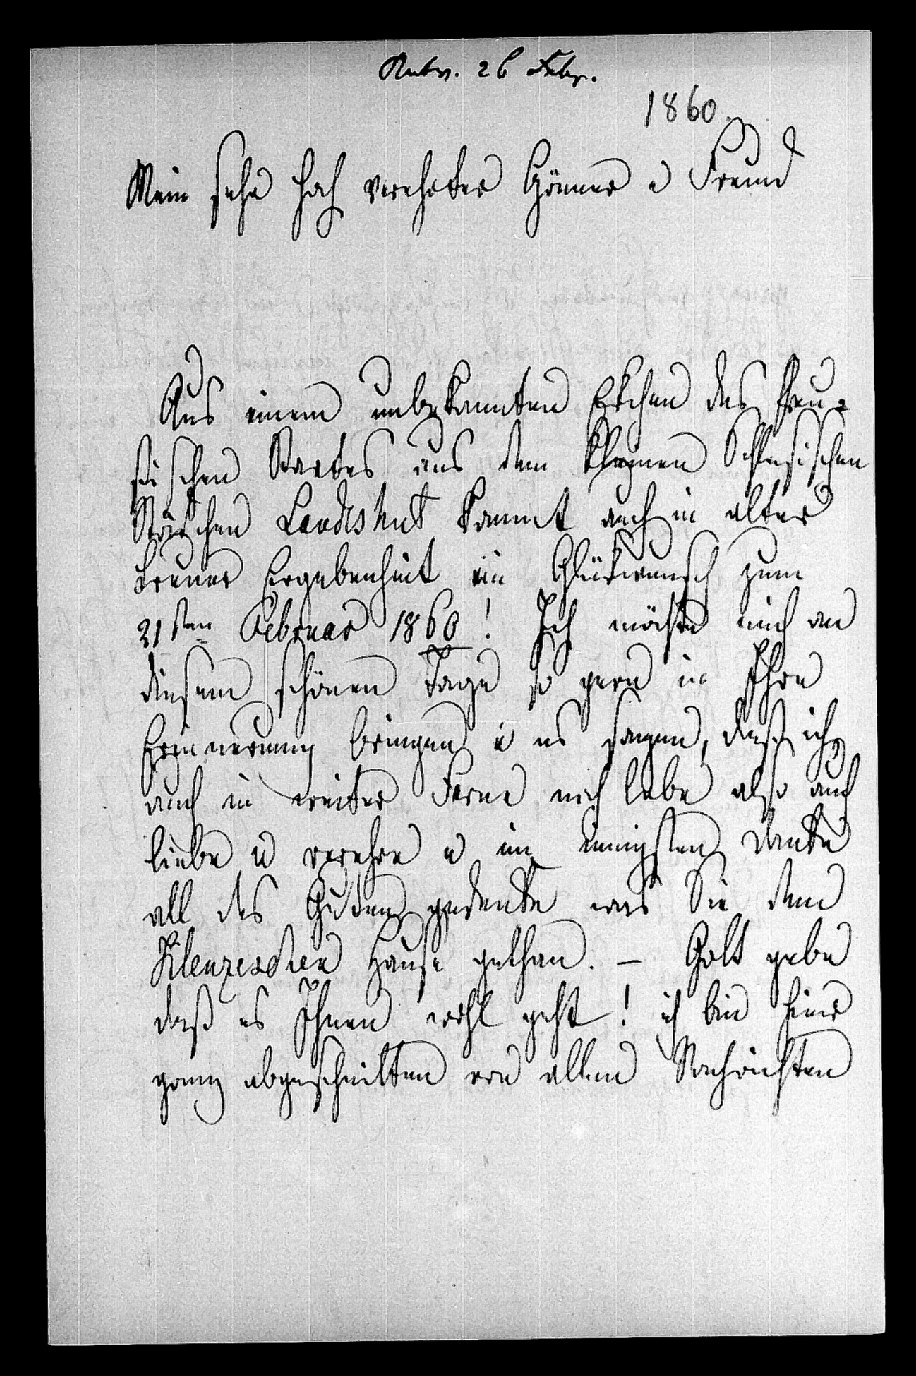 Antw. 26 Febr.
1860.
Mein sehr hoch verehrter Gönner u Freund
Aus einem unbekannten Eckchen des Preu-
ßischen Staates aus dem kleinen Schlesischen
Städtchen Landshut kommt auch in alter
treuer Ergebenheit ein Glückwunsch zum
21sten Februar 1860! Ich möchte mich an
diesem schönen Tage so gern in Ihre
Erinnerung bringen u es sagen, daß ich
auch in weiter Ferne noch lebe also auch
liebe u verehre u im innigsten Danke
all des Guten gedenke was Sie dem
Klenzeschen Hause gethan. — Gott gebe
daß es Ihnen wohl geht! ich bin hier
ganz abgeschnitten von allen Nachrichten